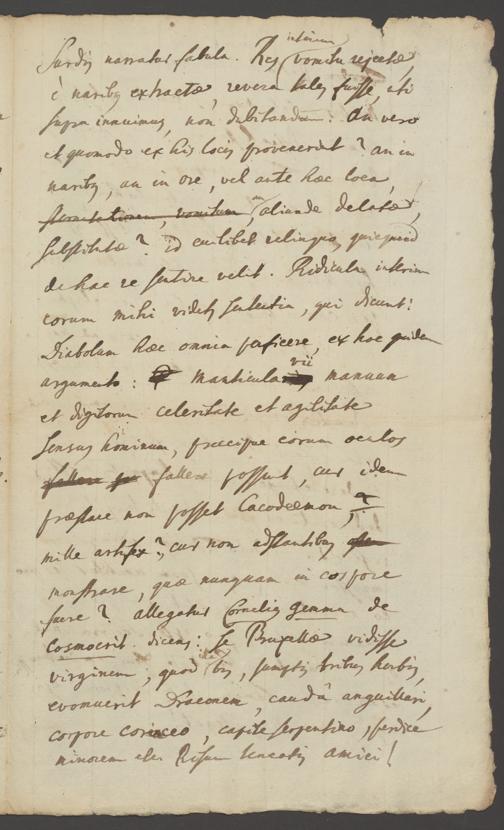 interim
Surdis narratur fabula. Res vomitu rejectæ,
è naribus extractæ, revera tales fuisse, uti
supra innuimus, non dubitandum: An vero
et quomodo ex his locis provenerint? an in
naribus, an in ore, vel ante hæc loca,
sternutationem, vomitum an aliunde delatæ,
substitutæ? id cuilibet relinquo, quicquid
de hac re sentire velit. Ridicula interim
eorum mihi videtur sententia, qui dicunt:
Diabolum hæc omnia perficere, ex hoc quidem
vii
argumento: manticularii manuum
et digitorum celeritate et agilitate
sensus hominum, præcipue eorum oculos
fallere fallere possunt, cur idem
præstare non posset Cacodæmon,?
mille artifex?, cur non adstantibus
monstrare, quæ nunquam in corpore
fuere? allegatur Cornelius gemma de
cosmocrit. dicens: se Bruxellæ vidisse
virginem, quod bis, sumptis tribus herbis,
evomuerit Draconem, caudâ anguillari,
corpore coriaceo, capite serpentino, perdice
minorem etc. Risum teneatis amici!